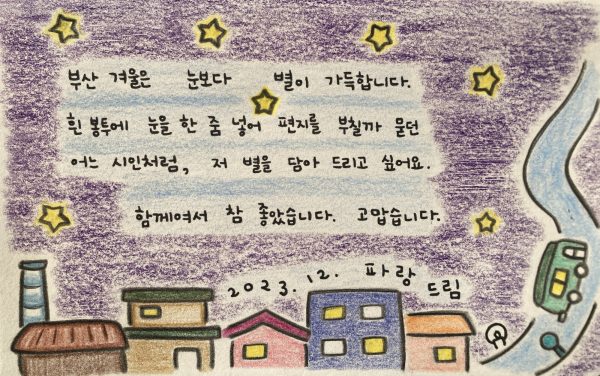 부산 겨울은 눈보다 별이 가득합니다.
흰 봉투에 눈을 한 줌 넣어 편지를 부칠까 묻던
어느 시인처럼, 저 별을 담아 드리고 싶어요.
함께여서 참 좋았습니다. 고맙습니다.
2023.12. 파랑 드림